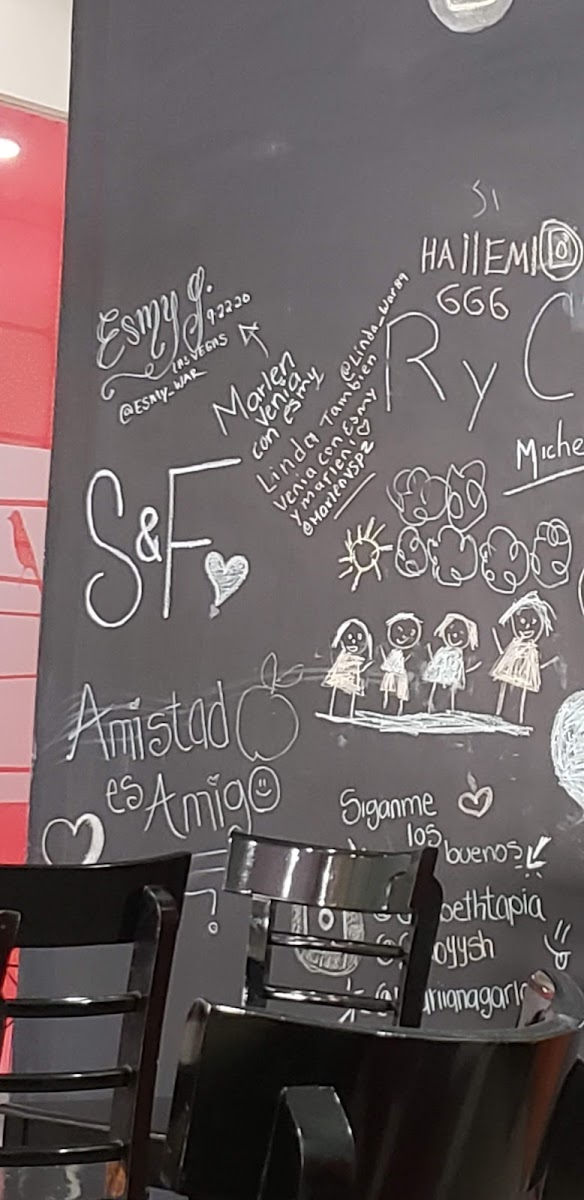 SI
HAIIEMI
666
Esmy g. 9-22-20
LAS VEGAS
@ESMY_WAR
Marlen
venia
con esmy
@Linda_War89
Linda Tambien
venia con Esmy
y marlen!
@MarlenVSPZ
R y C
Miche
S&F
Amistad
es Amigo
Siganme
los
buenos
oethtapia
oyysh
?